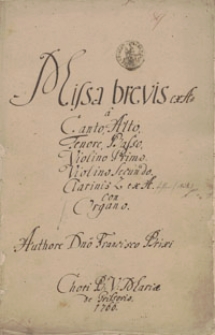 Missa brevis ex A
à
Canto, Alto,
Tenore, Basso,
Violino Primo.
Violino Secundo.
Clarinis 2 ex A.
con
Organo.
Authore Dno Francisco Brixi
Chori B. V. Mariæ
de
1766.